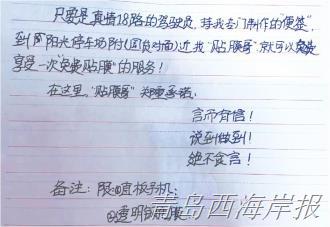 只要是真情18路的驾驶员，持我专门制作的"便签"，
到阳光停车场附(国贸对面)近我"贴膜哥"，就可以免费
享受一次"免费贴膜"的服务！
在这里，"贴膜哥"关注
言而有信！
说到做到！
绝不食言！
备注：限①直板手机；
②透明钢化膜
青岛西海岸报